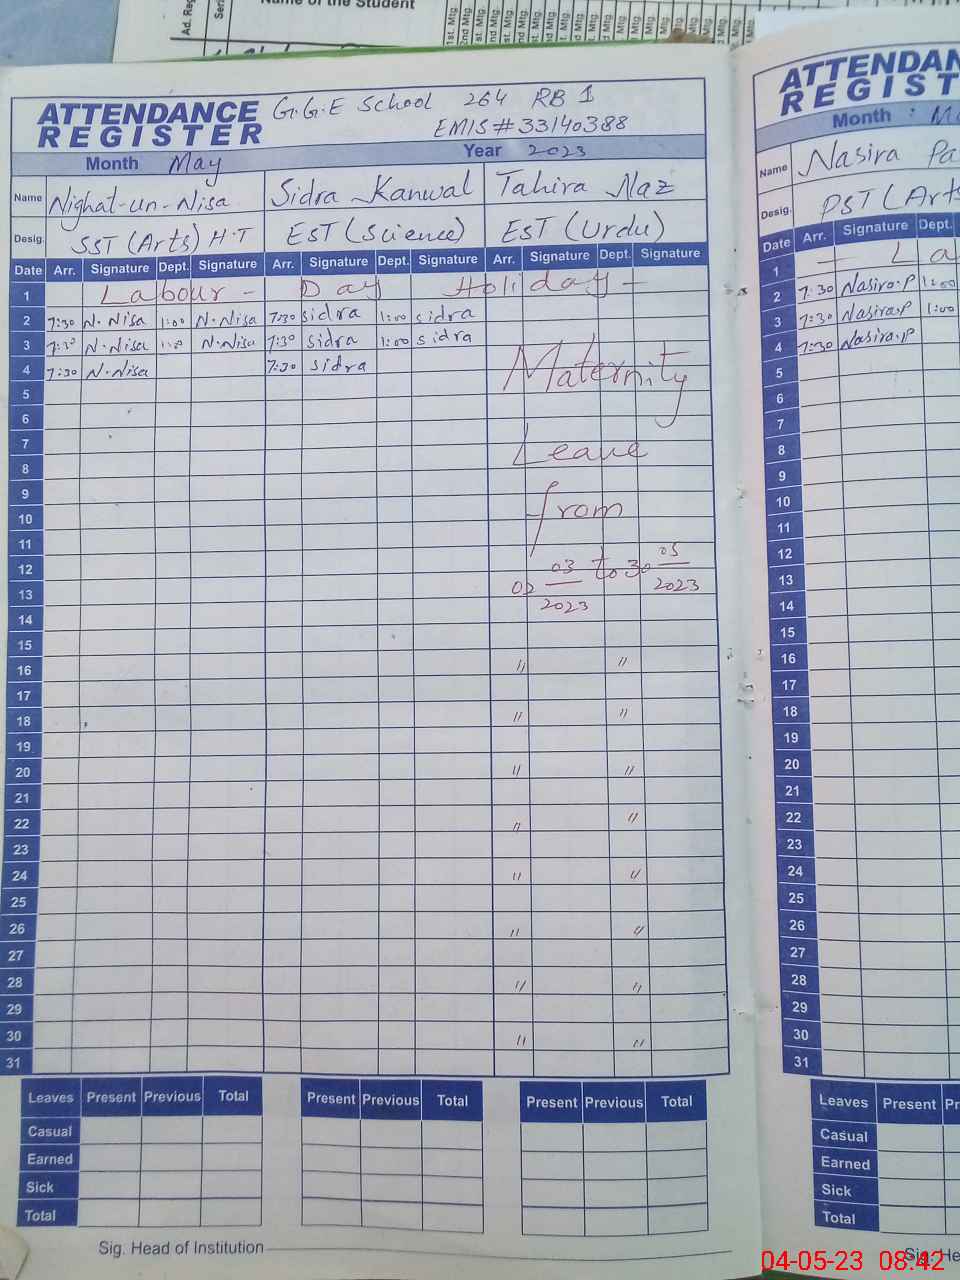 Name of the Student
Ad. Reg
Seri
1st. Mtg. 2nd Mtg. 1st. Mtg. 2nd Mtg.
ATTENDANCE REGISTER
G.G.E School 264 RB 1
EMIS # 33140388
Month May Year 2023
Name Nighat-un-Nisa Sidra Kanwal Tahira Naz
Desig. SST (Arts) H.T EST (Science) EST (Urdu)
Date Arr. Signature Dept. Signature Arr. Signature Dept. Signature Arr. Signature Dept. Signature
1 Labour - Day Holiday -
2 7:30 N.Nisa 1:00 N.Nisa 7:30 sidra 1:00 sidra
3 7:30 N.Nisa 1:00 N.Nisa 7:30 sidra 1:00 sidra
4 7:30 N.Nisa 7:30 sidra Maternity
5
6
7 Leave
8
9
10 from
11
12 02 03/2023 to 30 05/2023
13
14
15
16 〃 〃
17
18 〃 〃
19
20 〃 〃
21
22 〃 〃
23
24 〃 〃
25
26 〃 〃
27
28 〃 〃
29
30 〃 〃
31
Leaves Present Previous Total Present Previous Total Present Previous Total
Casual
Earned
Sick
Total
Sig. Head of Institution
ATTENDAN
REGIST
Month : Ma
Name Nasira Pa
Desig. PST (Arts
Date Arr. Signature Dept.
1 — La
2 7:30 Nasira.P 1:00
3 7:30 Nasira.P 1:00
4 7:30 Nasira.P
5
6
7
8
9
10
11
12
13
14
15
16
17
18
19
20
21
22
23
24
25
26
27
28
29
30
31
Leaves Present Pr
Casual
Earned
Sick
Total
Sig. He
04-05-23 08:42